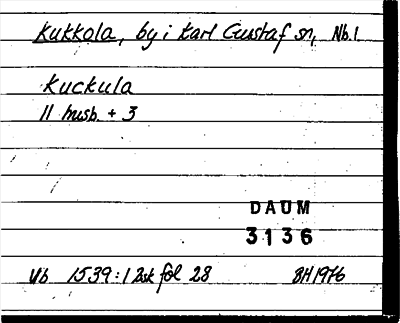 Kukkola, by i Karl Gustaf sn, Nb.l.
Kuckula
11 husb. + 3
DAUM
3136
Vb 1539:12sk fol 28 BH1976